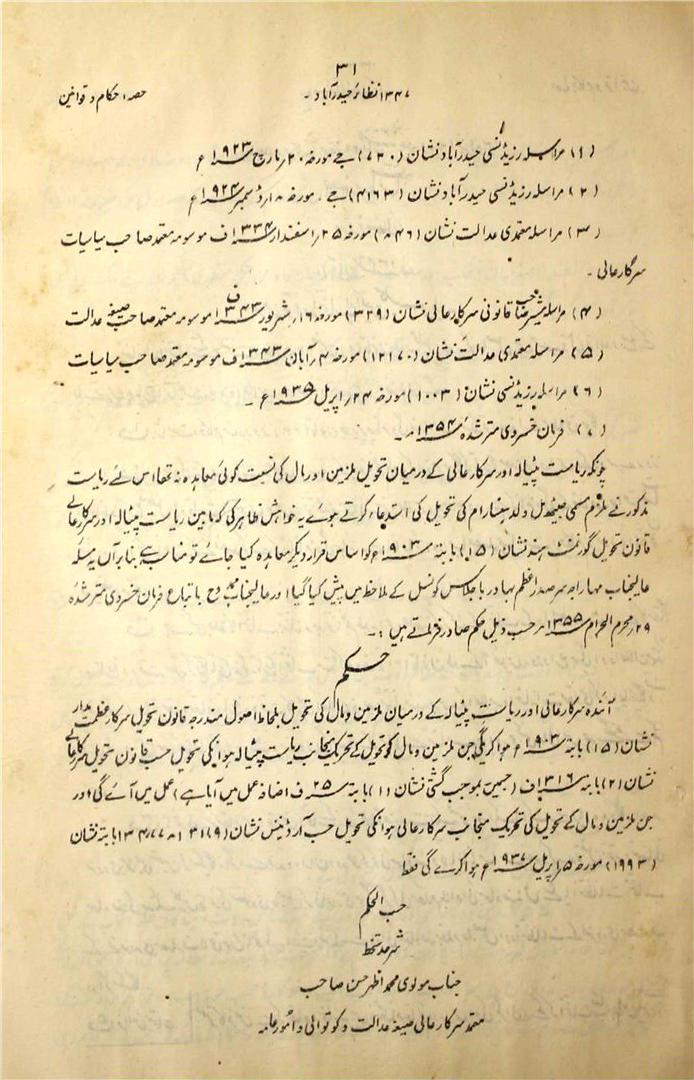 ۳۱
۱۳۴۷ نظائر حیدرآباد۔
حصہ احکام و قوانین
(۱) مراسلہ رزیڈنسی حیدرآباد نشان (۷۲۰) جے مورخہ ۲۰؍مارچ ۱۹۲۳ء
(۲) مراسلہ رزیڈنسی حیدرآباد نشان (۴۱۶۳) جے۔ مورخہ ۸؍ڈسمبر ۱۹۲۴ء
(۳) مراسلہ معتمدی عدالت نشان (۸۴۶) مورخہ ۲۵؍اسفندار ۱۳۳۴ف موسومہ معتمد صاحب سیاسیات
سرکار عالی۔
(۴) مراسلہ مشیر صاحب قانونی سرکار عالی نشان (۳۲۹) مورخہ ۱۶؍شہریور ۱۳۴۳ف موسومہ معتمد صاحب صیغہ عدالت
(۵) مراسلہ معتمدی عدالت نشان (۱۲۱۷۰) مورخہ ۴؍آبان ۱۳۴۳ف موسومہ معتمد صاحب سیاسیات
(۶) مراسلہ رزیڈنسی نشان (۱۰۰۳) مورخہ ۲۴؍اپریل ۱۹۳۵ء۔
(۷) فرمان خسروی مترشدہ ۱۳۵۴ھ۔
چونکہ ریاست پٹیالہ اور سرکار عالی کے درمیان تحویل ملزمین اور مال کی نسبت کوئی معاہدہ نہ تھا اس لئے ریاست
مذکور نے ملزم مسمی ولد کی تحویل کی استدعاء کرتے ہوئے یہ خواہش ظاہر کی کہ مابین ریاست پٹیالہ اور سرکار عالی
قانون تحویل گورنمنٹ ہند نشان (۱۵) بابتہ ۱۹۰۳ء کو اساس قرار دیکر معاہدہ کیا جائے تو مناسب ہے بنابرآں یہ مسئلہ
عالیجناب مہاراجہ سر صدر اعظم بہادر باجلاس کونسل کے ملاحظہ میں پیش کیا گیا اور عالیجناب ممدوح باتباع فرمان خسروی مترشدہ
۲۹؍محرم الحرام ۱۳۵۵ھ حسب ذیل حکم صادر فرماتے ہیں :۔
حکم
آئندہ سرکار عالی اور ریاست پٹیالہ کے درمیان ملزمین و مال کی تحویل بلحاظ اصول مندرجہ قانون تحویل سرکار عظمت مدار
نشان (۱۵) بابتہ ۱۹۰۳ء ہوا کریگی جن ملزمین و مال کو تحویل کے تحریک منجانب ریاست پٹیالہ ہو انکی تحویل حسب قانون تحویل سرکار عالی
نشان (۲) بابتہ ۱۳۱۶ف (جسمیں بموجب گشتی نشان (۱) بابتہ ۲۵ف اضافہ عمل میں آیا ہے) عمل میں آئے گی اور
جن ملزمین و مال کے تحویل کی تحریک منجانب سرکار عالی ہو انکی تحویل حسب آرڈیننس نشان (۹) بابتہ نشان
(۱۹۹۳) مورخہ ۵؍اپریل ۱۹۳۷ء ہوا کرے گی فقط
حسب الحکم
شرحد تخط
جناب مولوی محمد اظہر حسن صاحب
معتمد سرکار عالی صیغہ عدالت و کوتوالی و امور عامہ